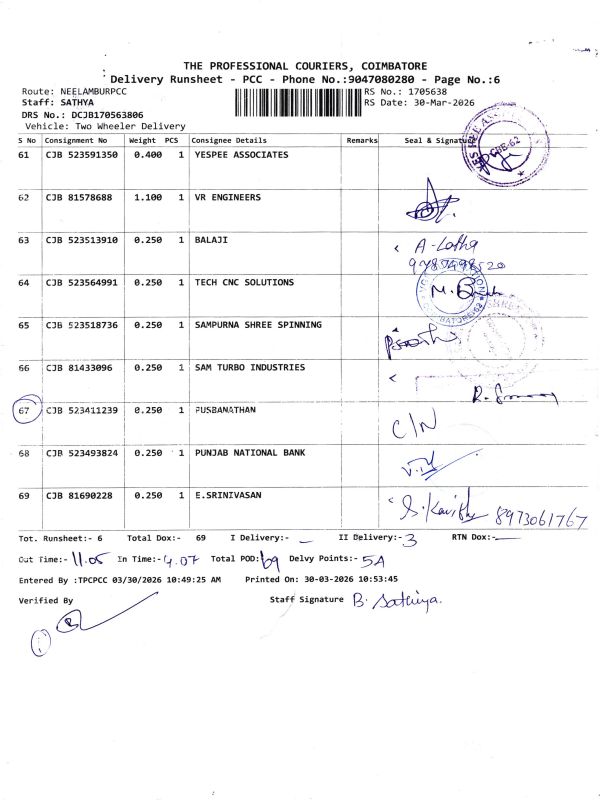 THE PROFESSIONAL COURIERS, COIMBATORE
Delivery Runsheet - PCC - Phone No.:9047080280 - Page No.:6
Route: NEELAMBURPCC
RS No.: 1705638
Staff: SATHYA
RS Date: 30-Mar-2026
DRS No.: DCJB170563806
Vehicle: Two Wheeler Delivery
S No Consignment No Weight PCS Consignee Details Remarks Seal & Signature
61 CJB 523591350 0.400 1 YESPEE ASSOCIATES
62 CJB 81578688 1.100 1 VR ENGINEERS
63 CJB 523513910 0.250 1 BALAJI A-Latha
64 CJB 523564991 0.250 1 TECH CNC SOLUTIONS
65 CJB 523518736 0.250 1 SAMPURNA SHREE SPINNING
66 CJB 81433096 0.250 1 SAM TURBO INDUSTRIES
67 CJB 523411239 0.250 1 PUSBANATHAN C/N
68 CJB 523493824 0.250 1 PUNJAB NATIONAL BANK
69 CJB 81690228 0.250 1 E.SRINIVASAN S.Kavitha 8973061767
Tot. Runsheet:- 6 Total Dox:- 69 I Delivery:- - II Delivery:- 3 RTN Dox:- -
Out Time:- 11.05 In Time:- 4.07 Total POD: 69 Delvy Points:- 5A
Entered By :TPCPCC 03/30/2026 10:49:25 AM Printed On: 30-03-2026 10:53:45
Verified By
Staff Signature B. Sathiya.